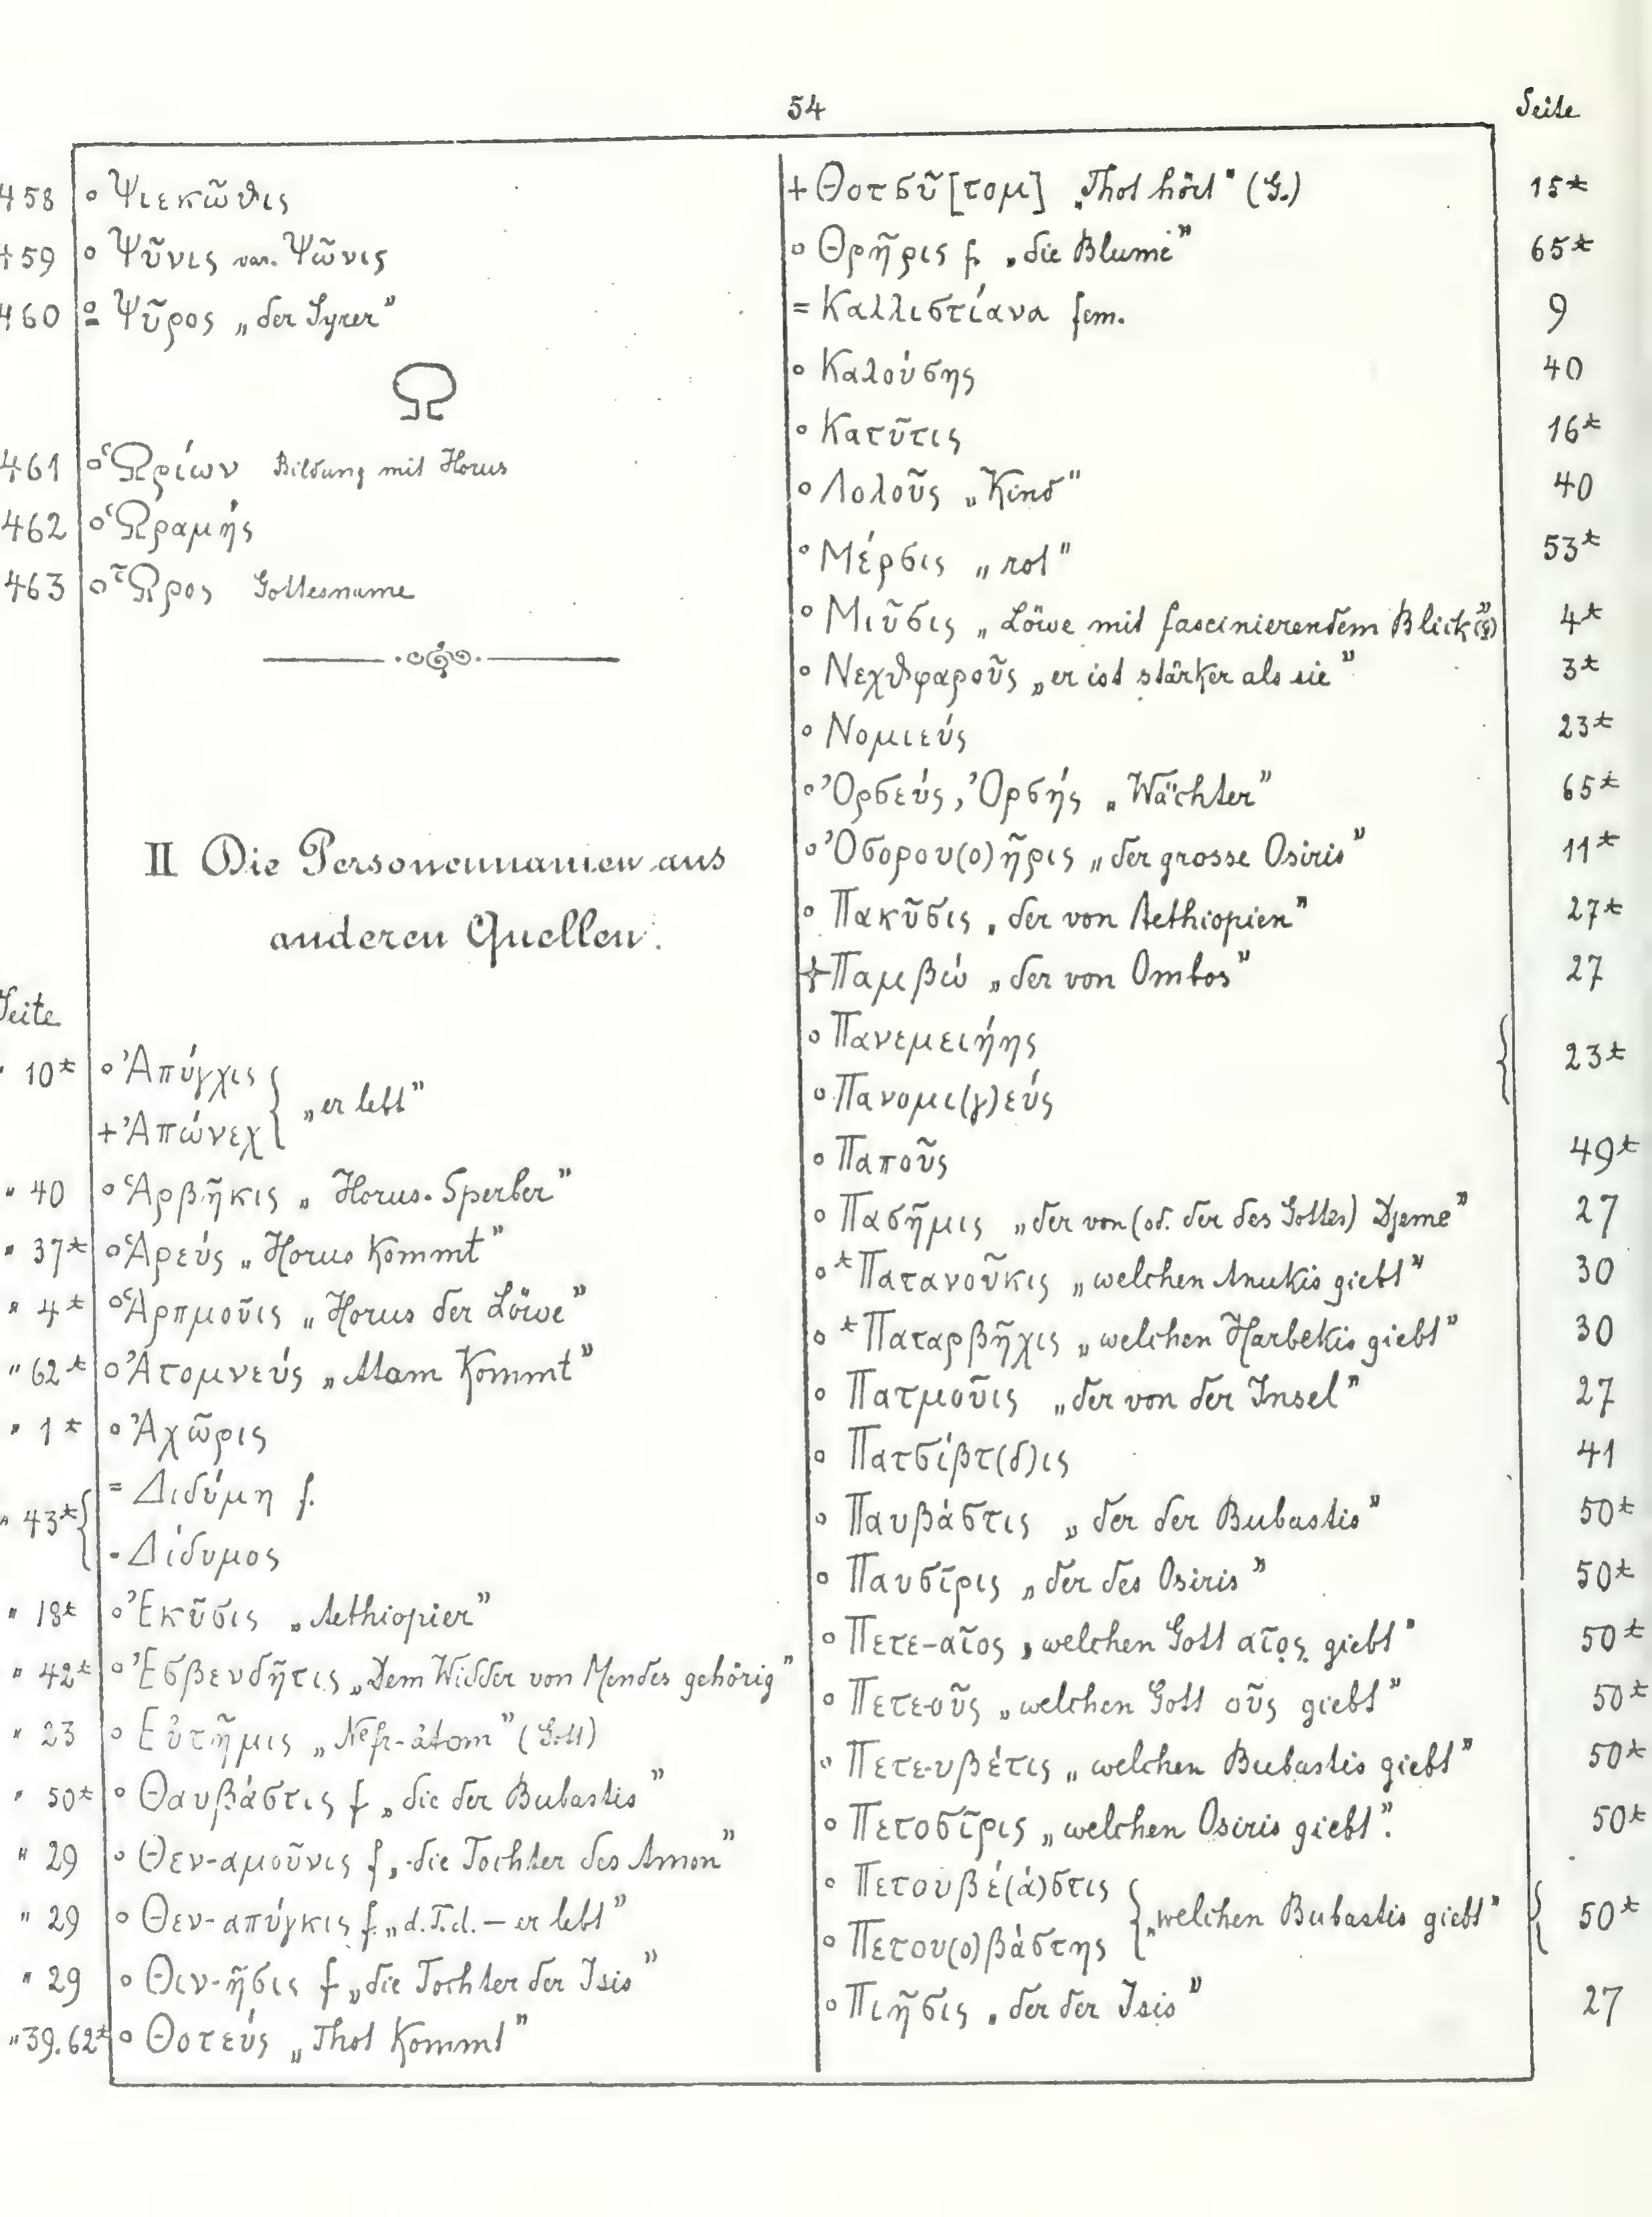 54
Seite
458 ° Ψιεκῶθις
459 ° Ψῦνις var. Ψῶνις
460 Ψῦρος „der Syrer”
Ω
461 ° Ὡρίων Bildung mit Horus
462 ° Ὡραμής
463 ° Ὧρος Gottesname
II Die Personennamen aus
anderen Quellen.
Seite
10* ° Ἀπύγχις
+ Ἀπώνεχ } „er lebt”
" 40 ° Ἁρβῆκις „Horus-Sperber”
" 37* ° Ἁρεύς „Horus kommt”
" 4* ° Ἁρπμοῦις „Horus der Löwe”
" 62* ° Ἀτομνεύς „Atam kommt”
" 1* ° Ἀχῶρις
" 43* { = Διδύμη f.
Δίδυμος
" 18* ° Ἐκῦσις „Aethiopier”
" 42* ° Ἐσβενδῆτις „Dem Widder von Mendes gehörig”
" 23 ° Εὐτῆμις „Nefr-âtom” (Gott)
" 50* ° Θαυβάστις f „die der Bubastis”
" 29 ° Θεν-αμοῦνις f, „die Tochter des Amon”
" 29 ° Θεν-απύγκις f. „d.T.d. — er lebt”
" 29 ° Θιν-ῆσις f „die Tochter der Isis”
" 39. 62* ° Θοτεύς „Thot kommt”
+ Θοτσῦ[τομ] „Thot hört” (G.) 15*
° Θρῆρις f. „die Blume” 65*
= Καλλιστίανα fem. 9
° Καλούσης 40
° Κατῦτις 16*
° Λολοῦς „Kind” 40
° Μέρσις „rot” 53*
° Μιῦσις „Löwe mit fascinierendem Blick(?)” 4*
° Νεχθφαροῦς „er ist stärker als sie” 3*
° Νομιεύς 23*
° Ὀρσεύς, Ὀρσής „Wächter” 65*
° Ὀσορου(ο)ῆρις „der grosse Osiris” 11*
° Πακῦσις „der von Aethiopien” 27*
+ Παμβώ „der von Ombos” 27
° Πανεμειήης
° Πανομι(γ)εύς } 23*
° Παποῦς 49*
° Πασῆμις „der von (od. der des Gottes) Djeme” 27
° *Πατανοῦκις „welchen Anukis giebt” 30
° *Παταρβῆχις „welchen Harbekis giebt” 30
° Πατμοῦις „der von der Insel” 27
° Πατσίβτ(δ)ις 41
° Παυβάστις „der der Bubastis” 50*
° Παυσῖρις „der des Osiris” 50*
° Πετε-αῖος „welchen Gott αῖος giebt” 50*
° Πετε-οῦς „welchen Gott οῦς giebt” 50*
° Πετε-υβέτις „welchen Bubastis giebt” 50*
° Πετοσῖρις „welchen Osiris giebt”. 50*
° Πετουβέ(ά)στις
° Πετου(ο)βάστης } „welchen Bubastis giebt” } 50*
° Πιῆσις „der der Isis” 27